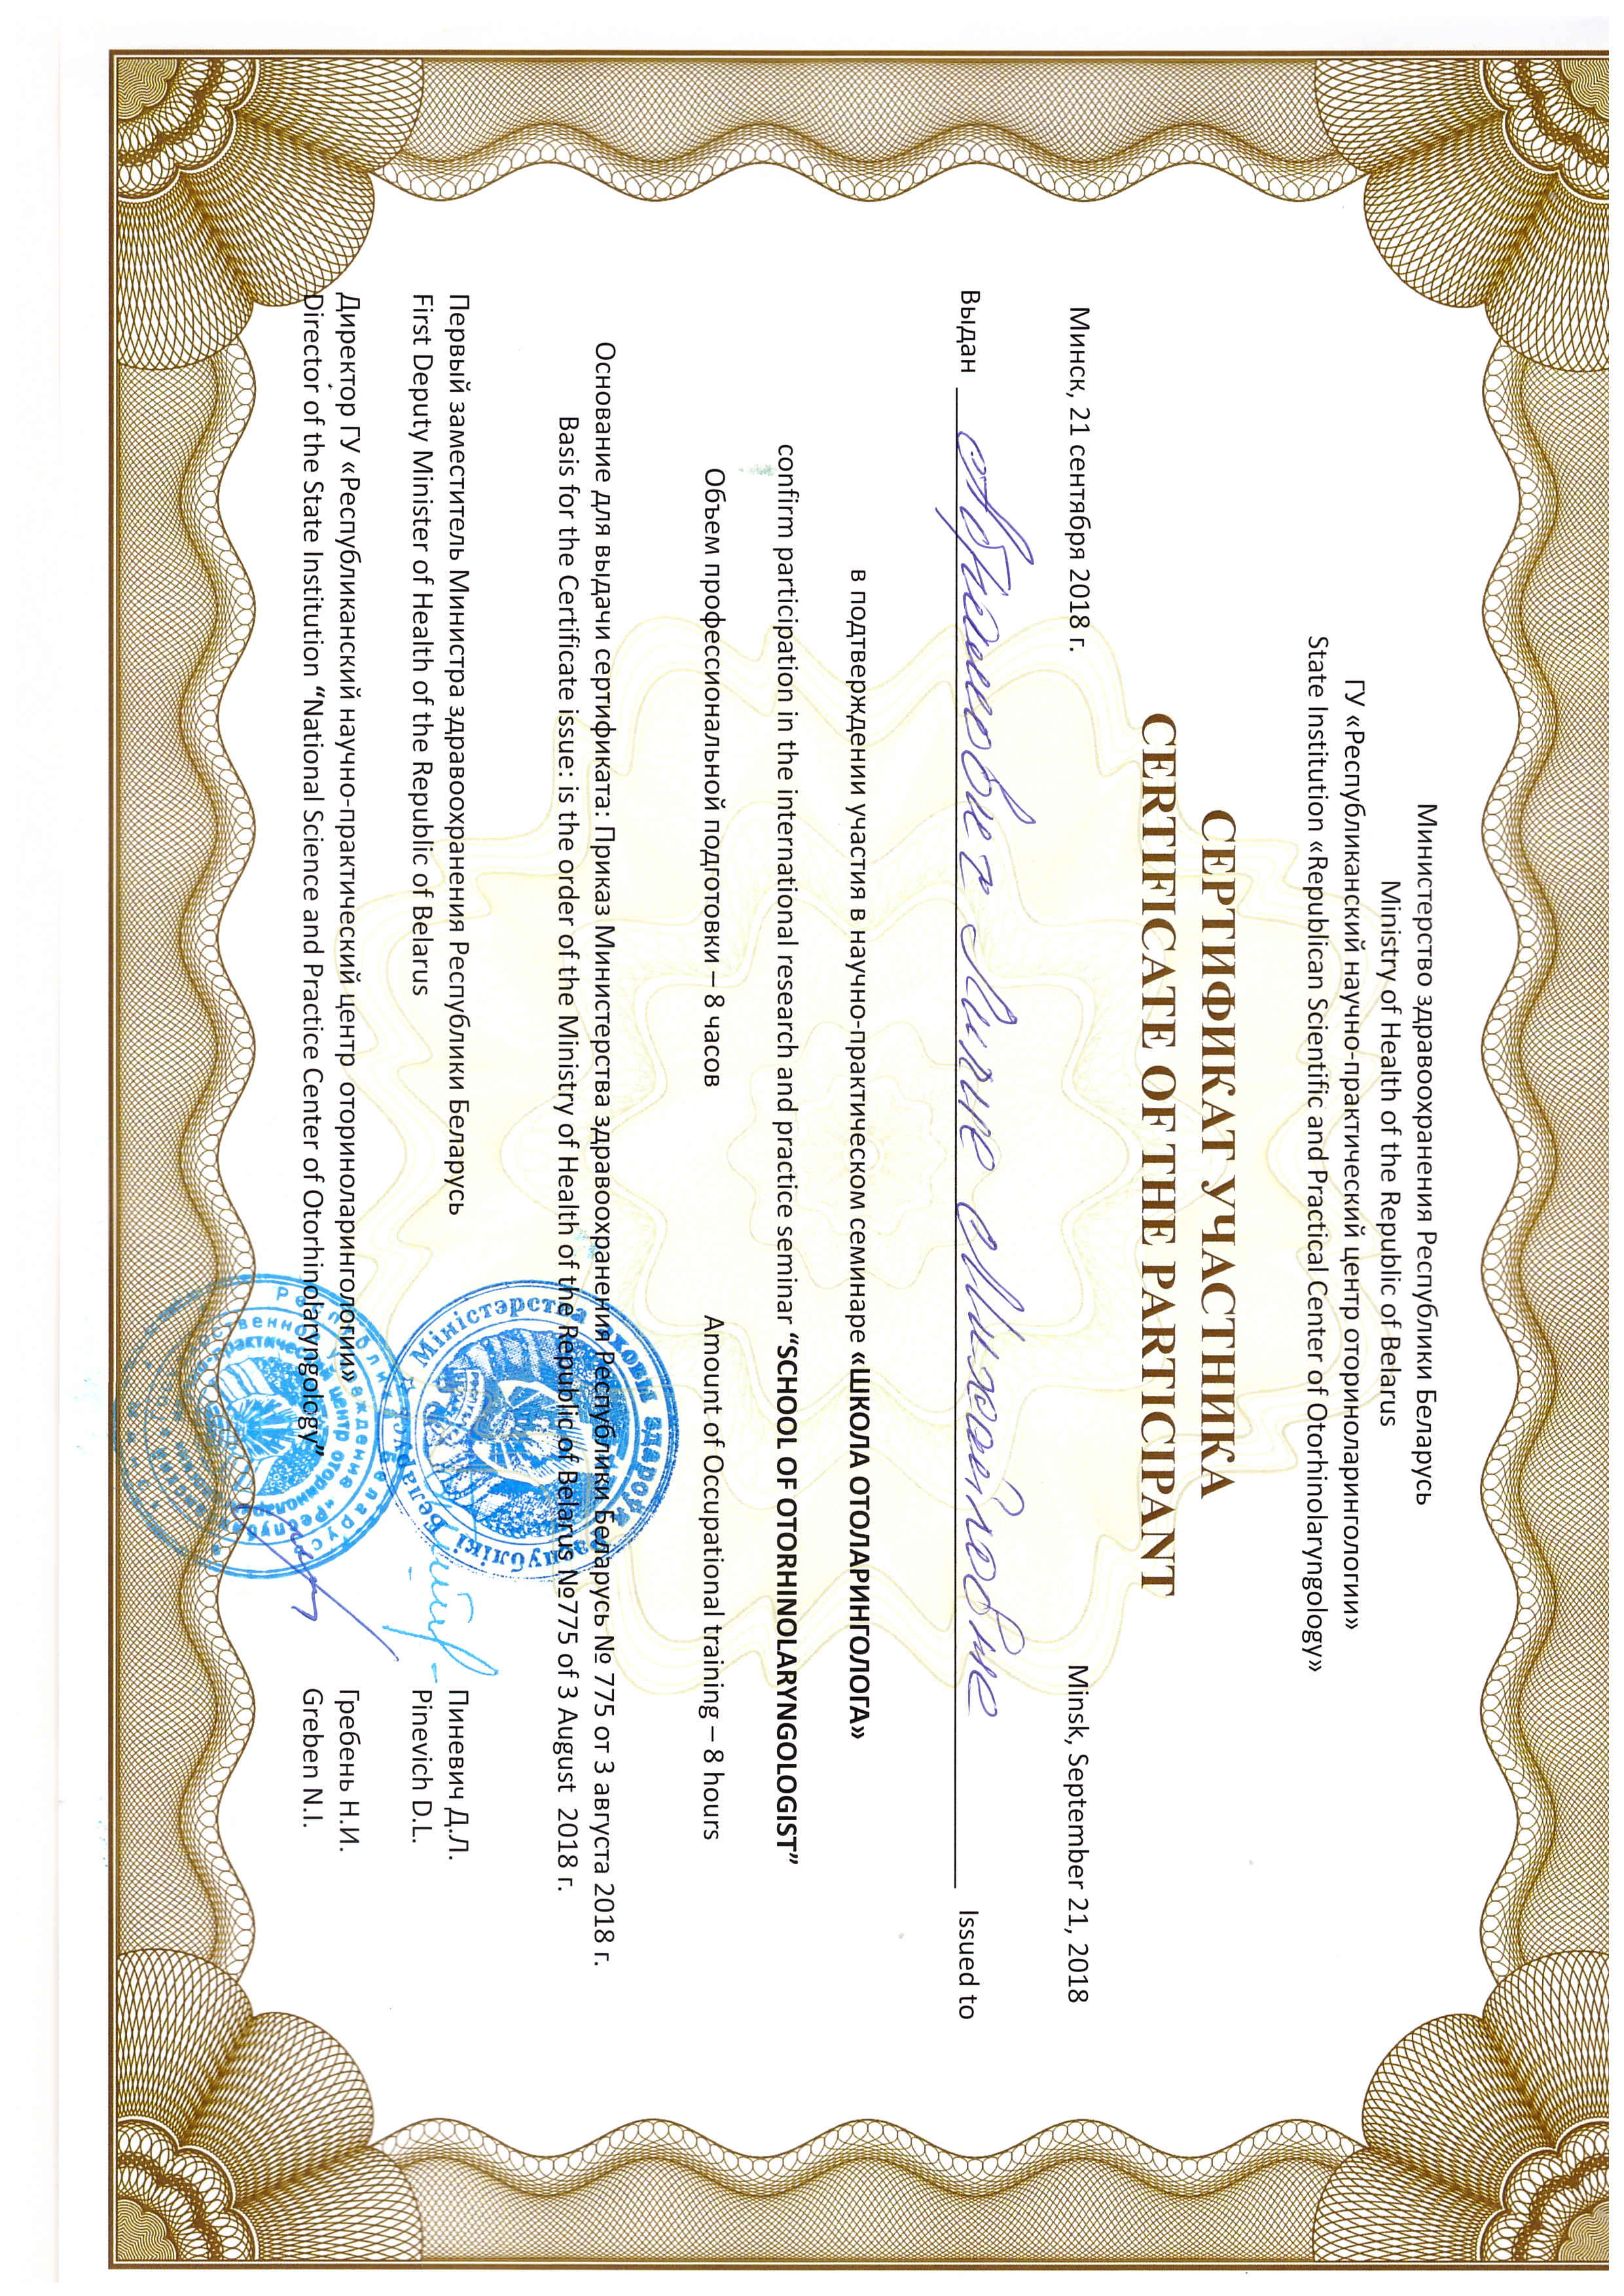 Министерство здравоохранения Республики Беларусь
Ministry of Health of the Republic of Belarus
ГУ «Республиканский научно-практический центр оториноларингологии»
State Institution «Republican Scientific and Practical Center of Otorhinolaryngology»
СЕРТИФИКАТ УЧАСТНИКА
CERTIFICATE OF THE PARTICIPANT
Минск, 21 сентября 2018 г. Minsk, September 21, 2018
Выдан Михайловне Issued to
в подтверждении участия в научно-практическом семинаре «ШКОЛА ОТОЛАРИНГОЛОГА»
confirm participation in the international research and practice seminar “SCHOOL OF OTORHINOLARYNGOLOGIST”
Объем профессиональной подготовки – 8 часов Amount of Occupational training – 8 hours
Основание для выдачи сертификата: Приказ Министерства здравоохранения Республики Беларусь № 775 от 3 августа 2018 г.
Basis for the Certificate issue: is the order of the Ministry of Health of the Republic of Belarus №775 of 3 August 2018 г.
Первый заместитель Министра здравоохранения Республики Беларусь Пиневич Д.Л.
First Deputy Minister of Health of the Republic of Belarus Pinevich D.L.
Директор ГУ «Республиканский научно-практический центр оториноларингологии» Гребень Н.И.
Director of the State Institution “National Science and Practice Center of Otorhinolaryngology” Greben N.I.
Міністэрства аховы здароўя Рэспублікі Беларусь